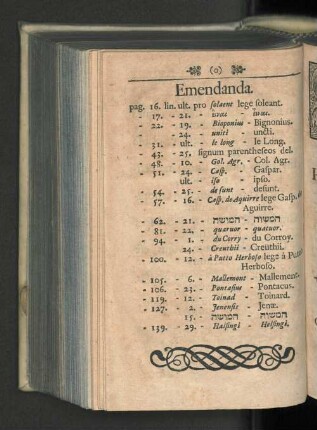 (o)
Emendanda.
pag. 16. lin. ult. pro solaene lege soleant.
- 17. - 21. -
- 22. - 19. - Bioponius - Bignonius.
- 24. - uniti - uncti.
- 31. - ult. - le long - le Long.
- 43. - 25. signum parentheseos del.
- 48. - 10. - Gol. Agr. - Col. Agr.
- 51. - 24. - Casp. - Gaspar.
ult. - iso - ipso.
- 54. - 25. - de sunt - desunt.
- 57. - 16. - Casp. de Aquirre lege Gasp. de
Aguirre.
- 62. - 21. -
- 81. - 22. - quaruor - quatuor.
- 94. - 1. - du Corry - du Corroy.
- 24. - Creuthii - Creuthii.
- 100. - 12. - à Puttu Herboso lege à
Herboso.
- 105. - 6. - Mallemont - Mallement.
- 106. - 23. - Pontasius - Pontacus.
- 119. - 12. - Toinad - Toinard.
- 127. - 2. - Jenensis - Jenæ.
15. -
- 139. - 29. - Halsingl. - Helsingl.